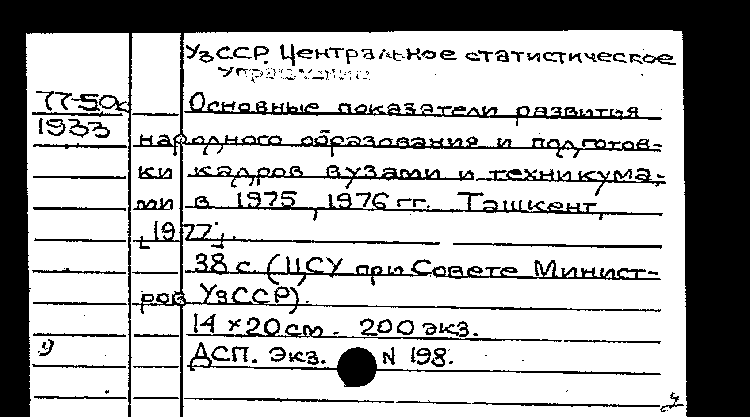 УзССР. Центральное статистическое
управление
77-50с
1933
Основные показатели развития
народного образования и подготов-
ки кадров вузами и техникума-
ми в 1975, 1976 гг. Ташкент,
[1977].
38 с. (ЦСУ при Совете Минист-
ров УзССР).
14 × 20 см. 200 экз.
у
ДСП. Экз. N 198.